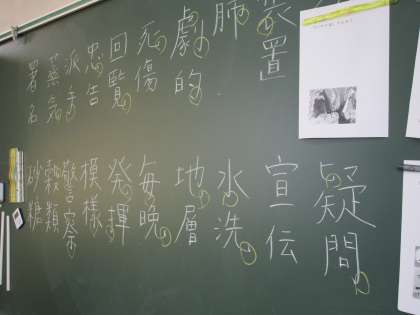 装置
肺
劇的
死傷
回覧
忠告
派手
蒸気
署名
疑問
宣伝
水洗
地層
毎晩
発揮
模様
警察
穀類
砂糖